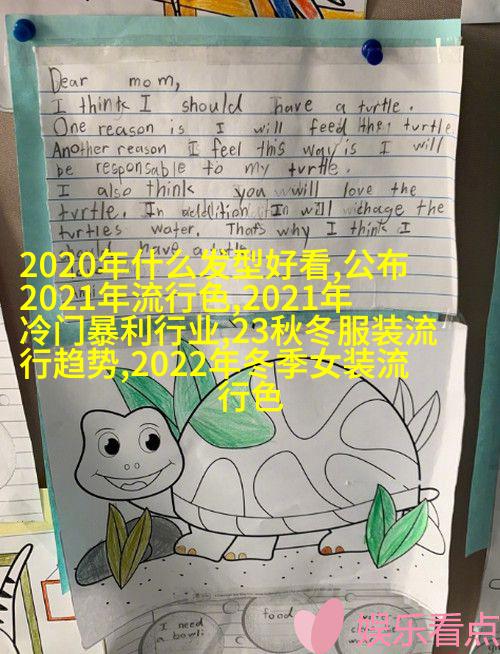 Dear mom,
I think I should have a turtle.
One reason is I will feed the turtle.
Another reason I feel this way is I will
be responsable to my turtle.
I also think you will love the
turtle. In addition I will chage the
turtles water. Thats why I think I
have a turtle
2020年什么发型好看,公布
2021年流行色,2021年
冷门暴利行业,23秋冬服装流
行趋势,2022年冬季女装流
行色
I need
a bowl
food
娱乐看点